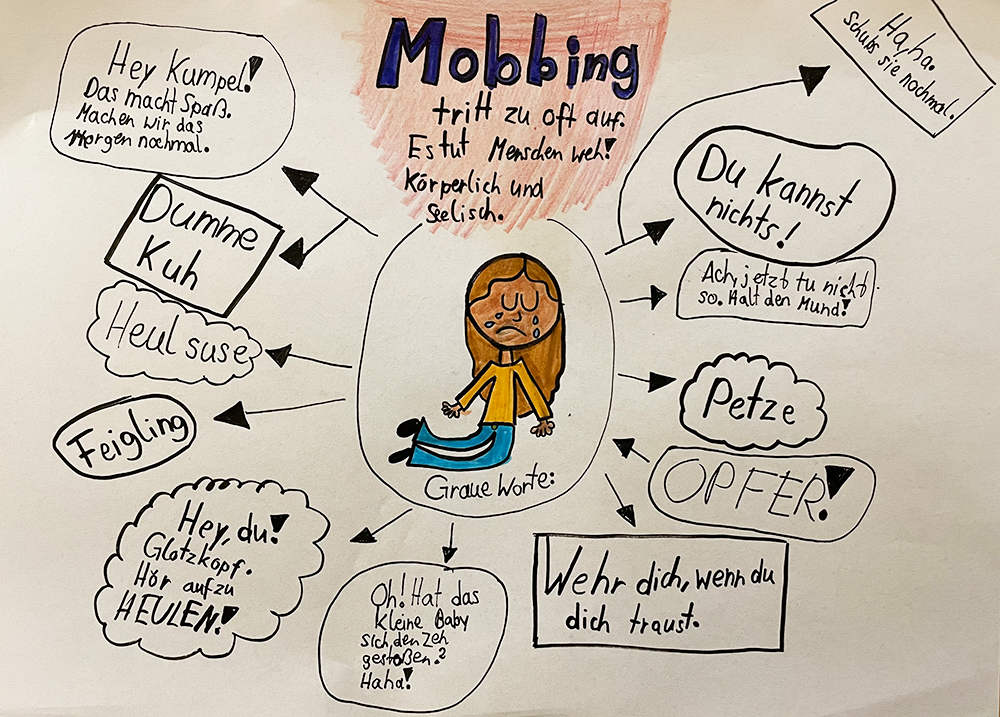 Mobbing
tritt zu oft auf.
Es tut Menschen weh!
Körperlich und
Seelisch.
Hey Kumpel!
Das macht Spaß.
Machen wir das
Morgen nochmal.
Dumme
Kuh
Heulsuse
Feigling
Hey, du!
Glotzkopf.
Hör auf zu
HEULEN!
Oh! Hat das
kleine Baby
sich, den Zeh
gestoßen.?
Haha!
Graue Worte:
Ha, ha.
Schubs sie nochmal.
Du kannst
nichts!
Ach, jetzt tu nicht
so. Halt den Mund!
Petze
OPFER!
Wehr dich, wenn du
dich traust.